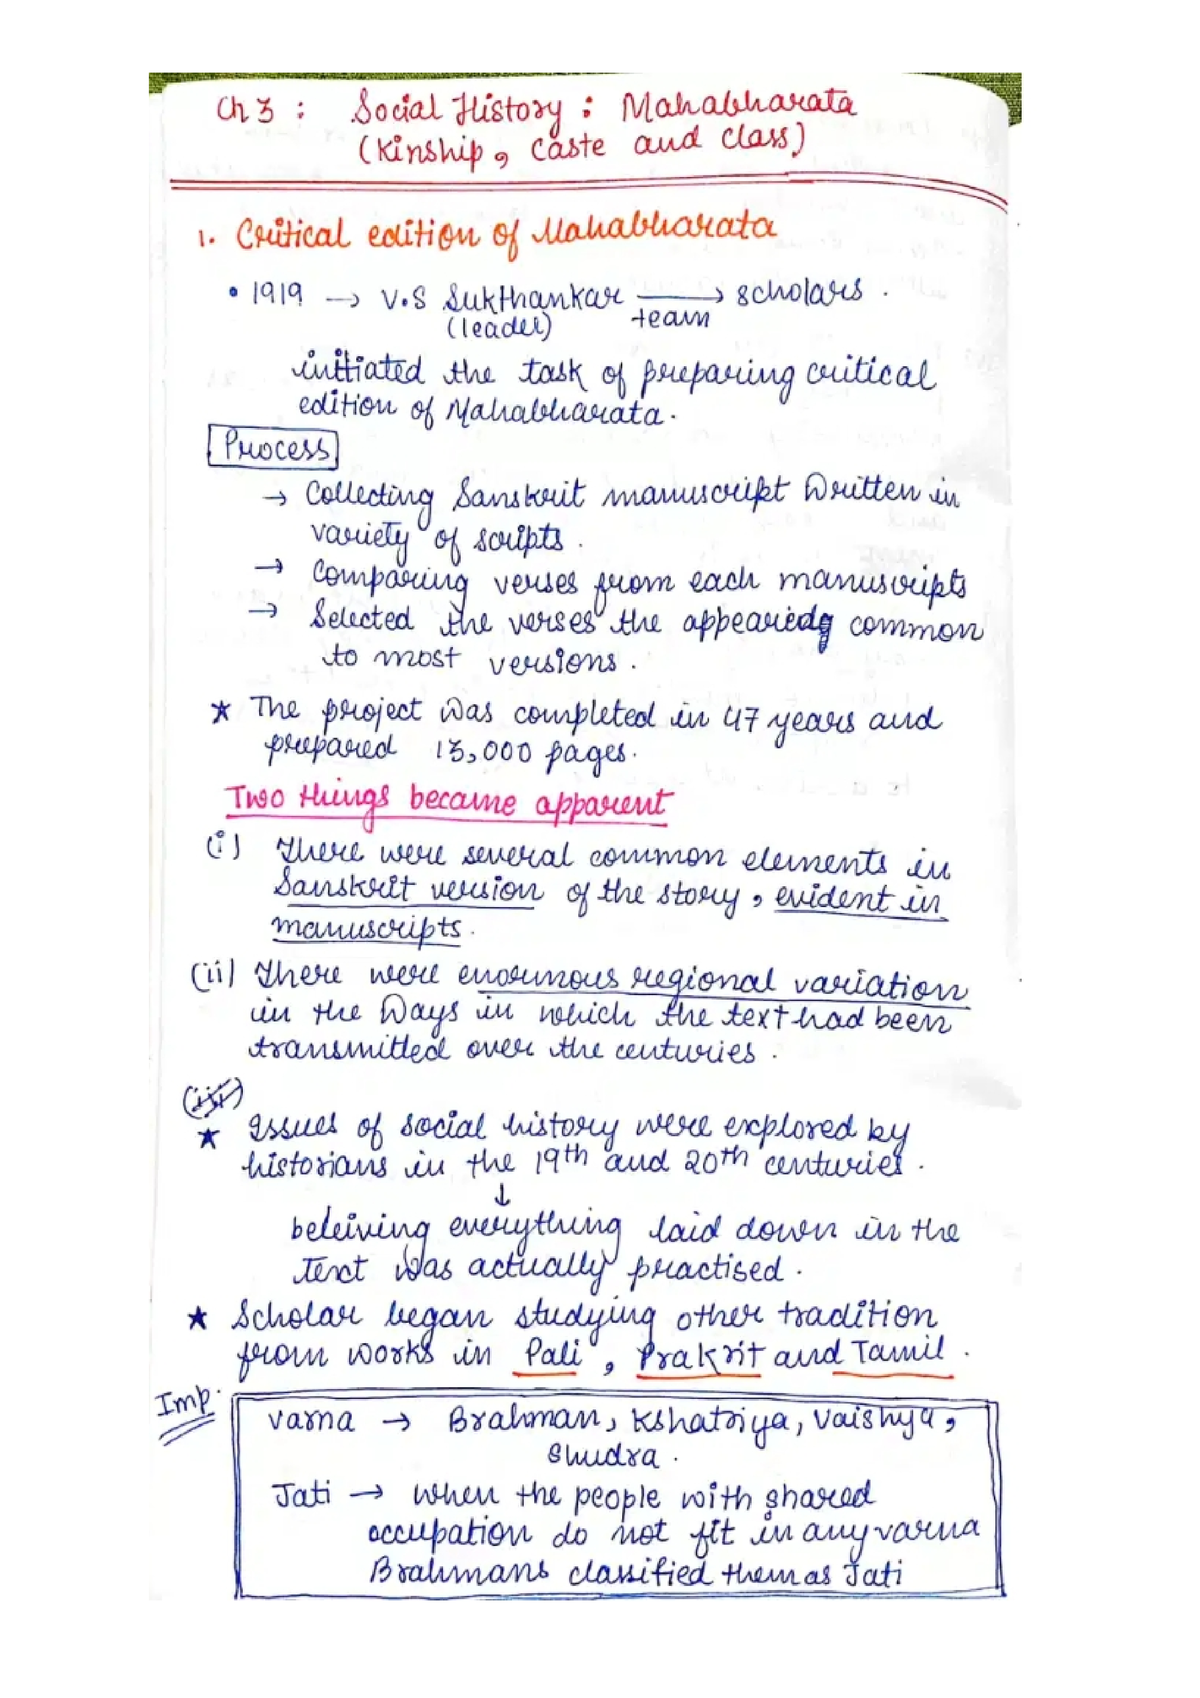 Ch 3 : Social History : Mahabharata
(Kinship, caste and class)
1. Critical edition of Mahabharata
• 1919 → V.S Sukthankar → scholars.
(leader) team
initiated the task of preparing critical
edition of Mahabharata.
Process
→ Collecting Sanskrit manuscript written in
variety of scripts.
→ Comparing verses from each manuscripts
→ Selected the verses the appeared common
to most versions.
★ The project was completed in 47 years and
prepared 13,000 pages.
Two things became apparent
(i) There were several common elements in
Sanskrit version of the story, evident in
manuscripts.
(ii) There were enourmous regional variation
in the ways in which the text had been
transmitted over the centuries.
(iii)
★ Issues of social history were explored by
historians in the 19th and 20th centuries.
↓
beleiving everything laid down in the
text was actually practised.
★ Scholar began studying other tradition
from works in Pali, Prakrit and Tamil.
Imp.
varna → Brahman, Kshatriya, Vaishya,
Shudra.
Jati → when the people with shared
occupation do not fit in any varna
Brahmans classified them as Jati